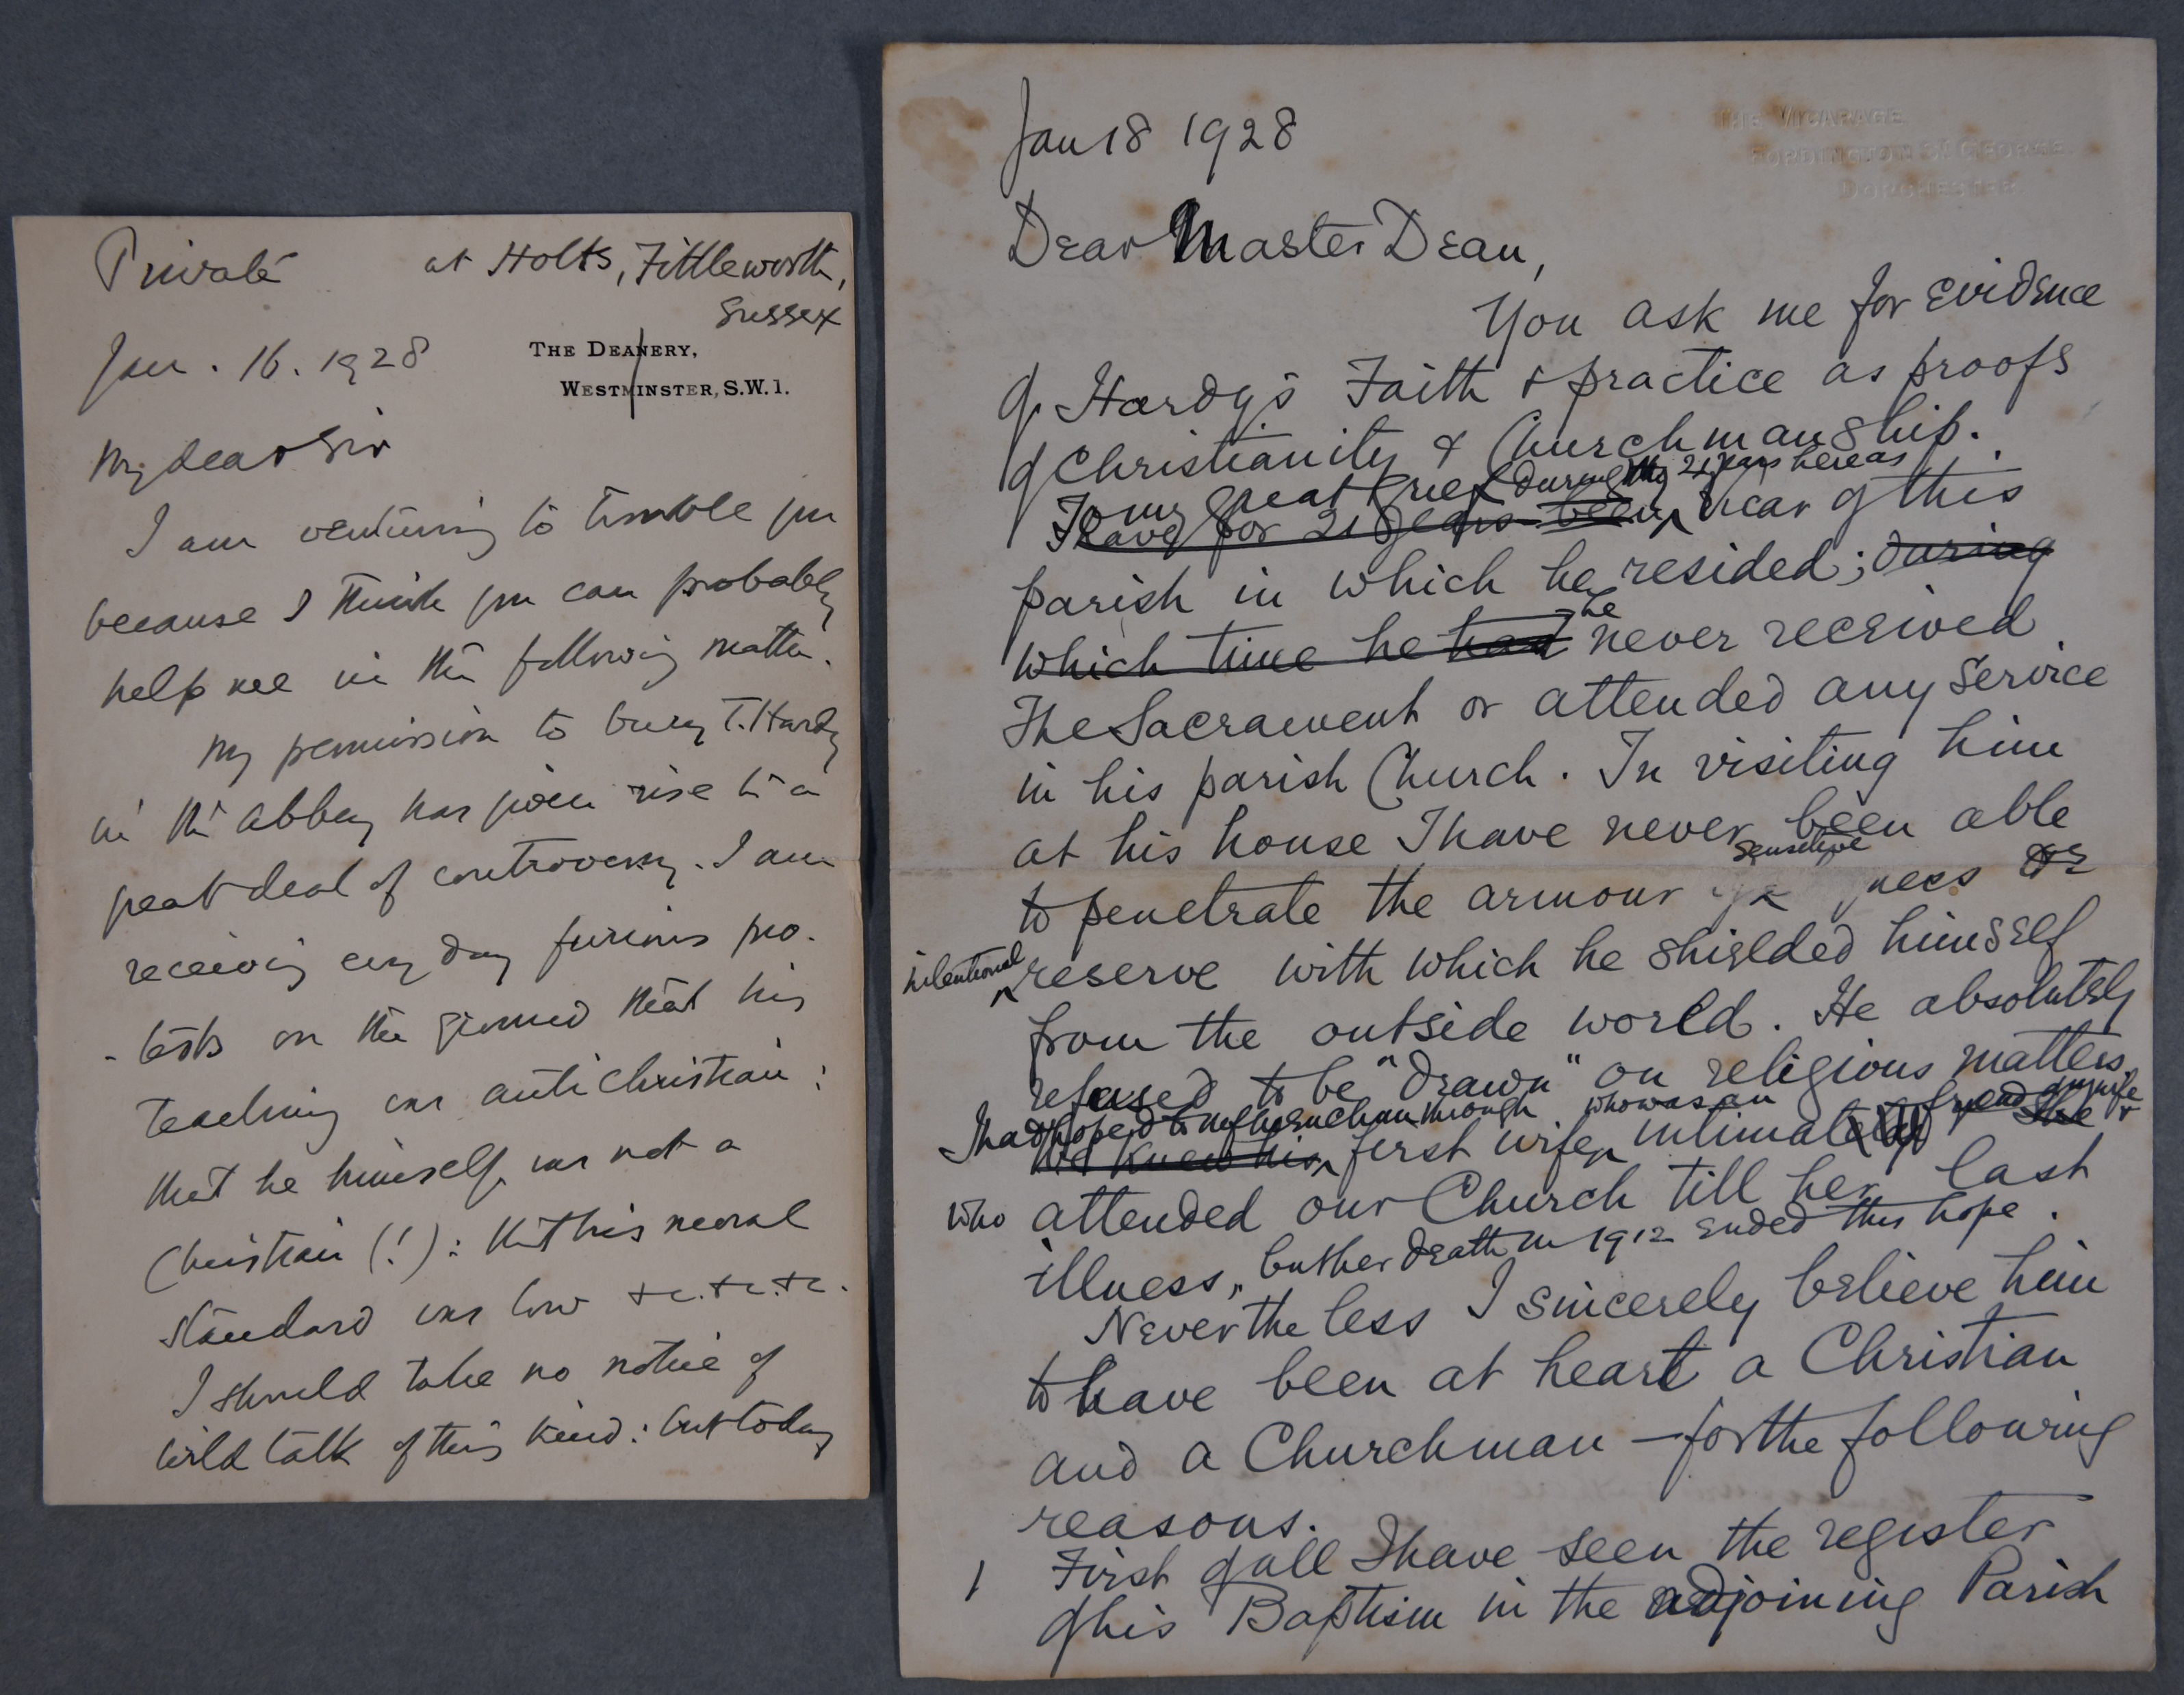 Private
at Holts, Fittleworth,
Sussex
Jan. 16. 1928
THE DEANERY,
WESTMINSTER, S.W.1.
My dear Sir
I am venturing to trouble you
because I think you can probably
help me in the following matter.
My permission to bury T. Hardy
in the Abbey has given rise to a
great deal of controversy. I am
receiving every day furious pro-
-tests on the ground that his
teaching was antichristian:
that he himself was not a
Christian (!): that his moral
standard was low &c. &c. &c.
I should take no notice of
wild talk of this kind: but today
THE VICARAGE
FORDINGTON ST GEORGE.
DORCHESTER.
Jan 18 1928
Dear Master Dean,
You ask me for evidence
of Hardy's Faith & practice as proofs
of Christianity & Churchmanship.
To my great grief during my 21 years here as
I have for 21 years been Vicar of this
parish in which he resided; during
which time he had he never received
The Sacrament or attended any Service
in his parish Church. In visiting him
at his house I have never been able
sensitive
to penetrate the armour ness or
intentional reserve with which he shielded himself
from the outside world. He absolutely
refused to be "drawn" on religious matters.
I had hoped to influence him through who was an friend of my wife &
We knew his first wife intimate She
who attended our Church till her last
illness, but her death in 1912 ended this hope.
Nevertheless I sincerely believe him
to have been at heart a Christian
and a Churchman — for the following
reasons.
1 First of all I have seen the register
of his Baptism in the adjoining Parish